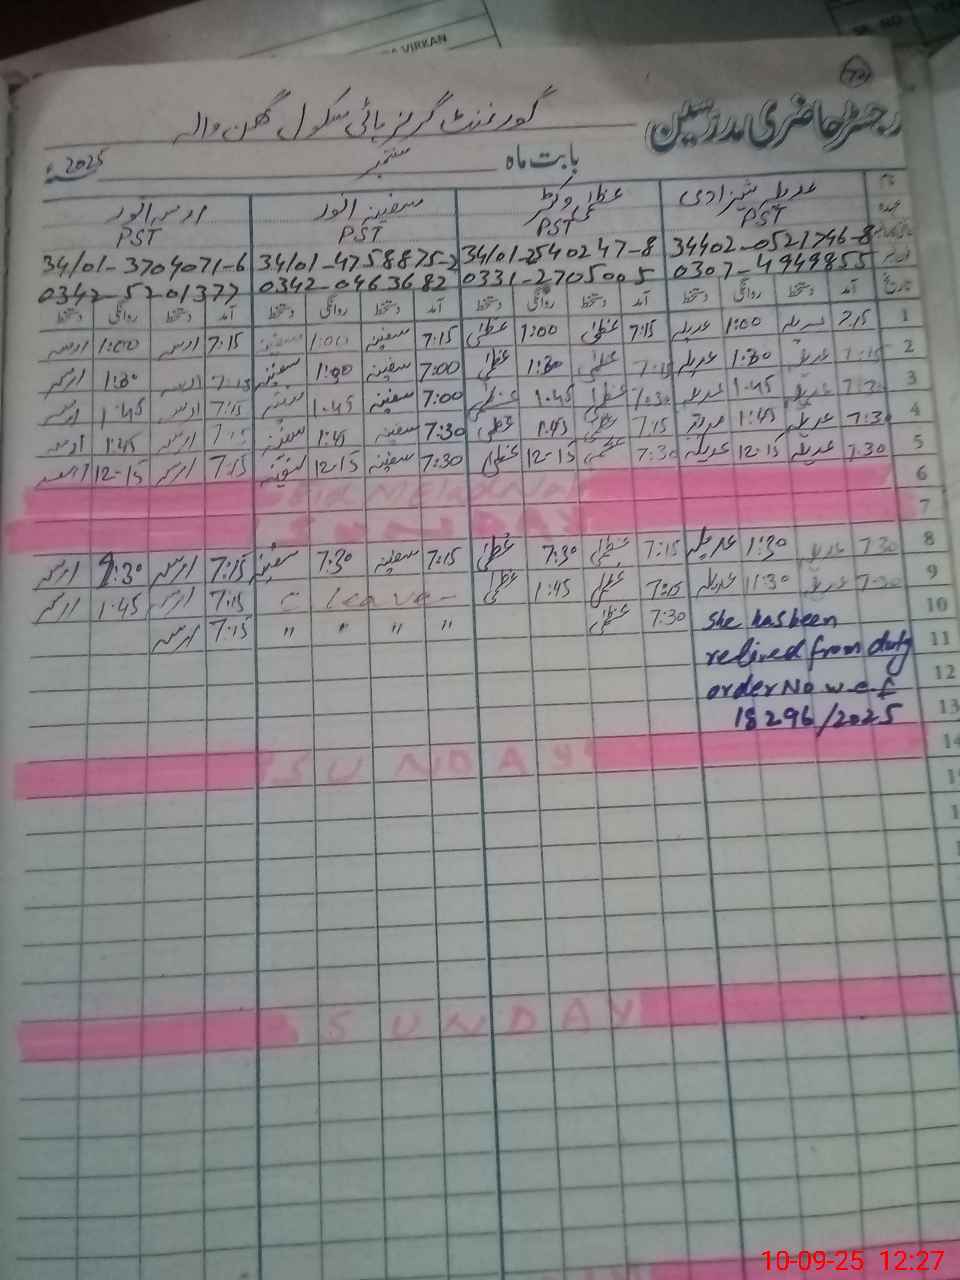 VIRKAN
72
رجسٹر حاضری مدرسین
گورنمنٹ گرلز ہائی سکول گھن والہ
بابت ماہ ستمبر 2025ء
نام عدیلہ شہزادی عظمیٰ وکٹر سفینہ انور
عہدہ PST PST PST PST
34402-0521746-8 34101-2540247-8 34101-4758875-2 34101-3704071-6
0307-4949855 0331-2705005 0342-0463682 0342-5201377
تاریخ آمد دستخط روانگی دستخط آمد دستخط روانگی دستخط آمد دستخط روانگی دستخط آمد دستخط روانگی دستخط
1 7:15 عدیلہ 1:00 عدیلہ 7:15 عظمیٰ 1:00 عظمیٰ 7:15 سفینہ 1:00 سفینہ 7:15 1:00
2 7:15 عدیلہ 1:30 عدیلہ 7:15 عظمیٰ 1:30 عظمیٰ 7:00 سفینہ 1:00 سفینہ 7:15 1:30
3 7:30 عدیلہ 1:45 عدیلہ 7:30 عظمیٰ 1:45 عظمیٰ 7:00 سفینہ 1:45 سفینہ 7:15 1:45
4 7:30 عدیلہ 1:45 عدیلہ 7:15 عظمیٰ 1:45 عظمیٰ 7:30 سفینہ 1:45 سفینہ 7:15 1:45
5 7:30 عدیلہ 12:15 عدیلہ 7:30 عظمیٰ 12-15 عظمیٰ 7:30 سفینہ 12:15 سفینہ 7:15 12-15
6 Eid Melad Nabi
7 SUNDAY
8 7:30 عدیلہ 1:30 عدیلہ 7:15 عظمیٰ 7:30 عظمیٰ 7:15 سفینہ 7:30 سفینہ 7:15
9 7:30 عدیلہ 11:30 عدیلہ 7:15 عظمیٰ 1:45 عظمیٰ - leave - 7:15 1:45
10 she has been 7:30 عظمیٰ " " " " 7:15
11 relived from duty
12 order No w.e.f
13 18296/2025
14 SUNDAY
SUNDAY
10-09-25 12:27